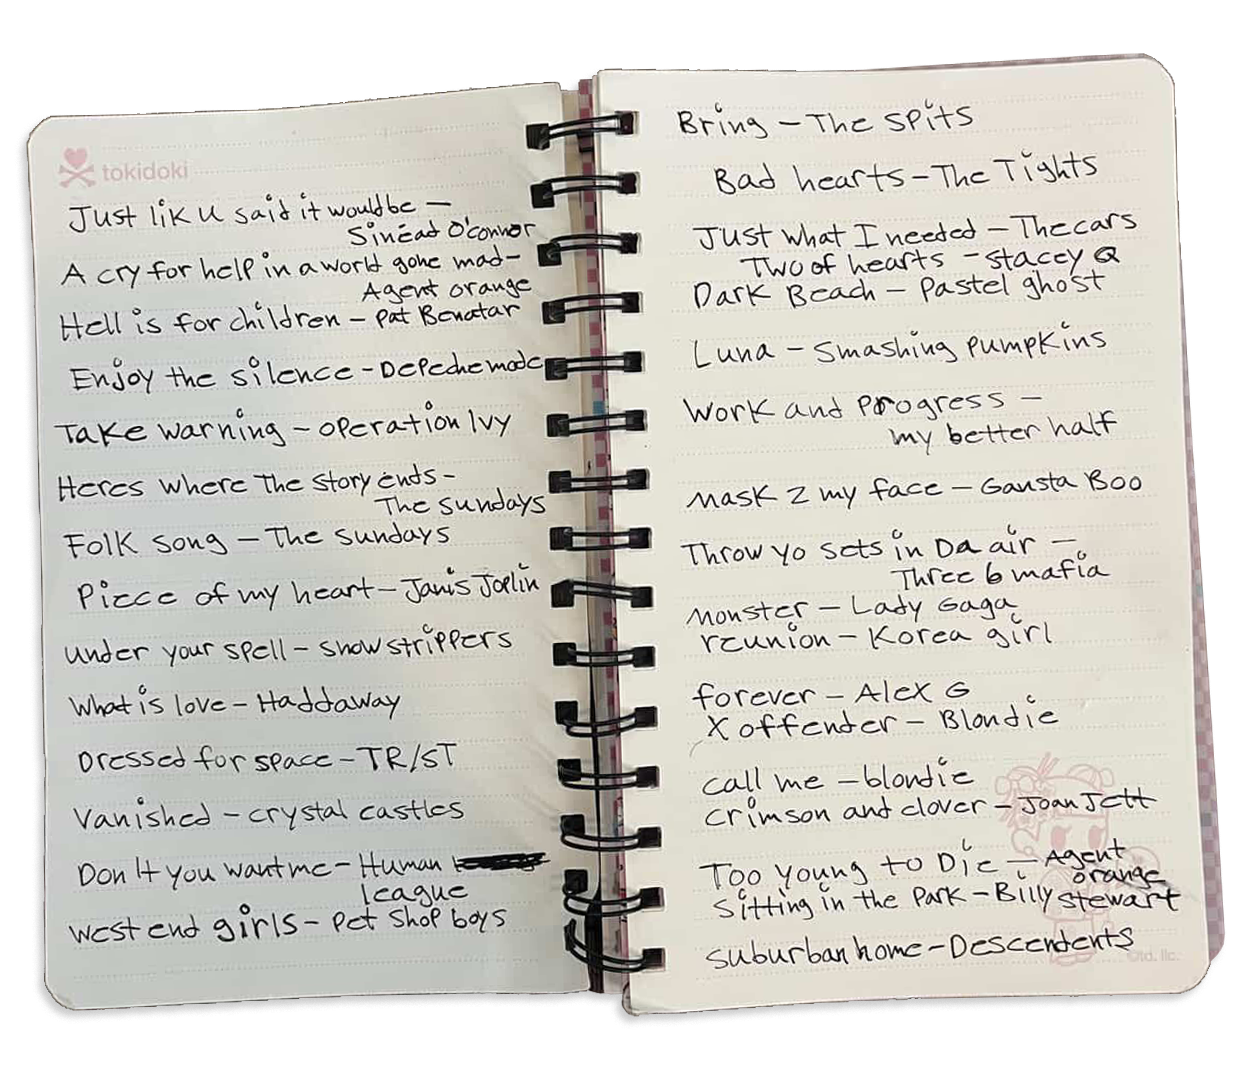 tokidoki
Just lik U said it would be –
Sinéad O'connor
A cry for help in a world gone mad–
Agent orange
Hell is for children – Pat Benatar
Enjoy the silence – Depeche mode
Take warning – operation Ivy
Heres where the story ends –
The sundays
Folk song – The sundays
Piece of my heart – Janis Joplin
under your spell – snow strippers
What is love – Haddaway
Dressed for space – TR/ST
Vanished – crystal castles
Don't you want me – Human
league
west end girls – Pet shop boys
Bring – The Spits
Bad hearts – The Tights
Just what I needed – The cars
Two of hearts – stacey Q
Dark Beach – Pastel ghost
Luna – Smashing pumpkins
Work and Progress –
my better half
Mask 2 my face – Gansta Boo
Throw yo sets in Da air –
Three 6 mafia
Monster – Lady Gaga
reunion – Korea girl
forever – Alex G
X offender – Blondie
call me – blondie
crimson and clover – Joan Jett
Too young to Die – Agent
orange
Sitting in the Park – Billy stewart
suburban home – Descendents
©td. llc.